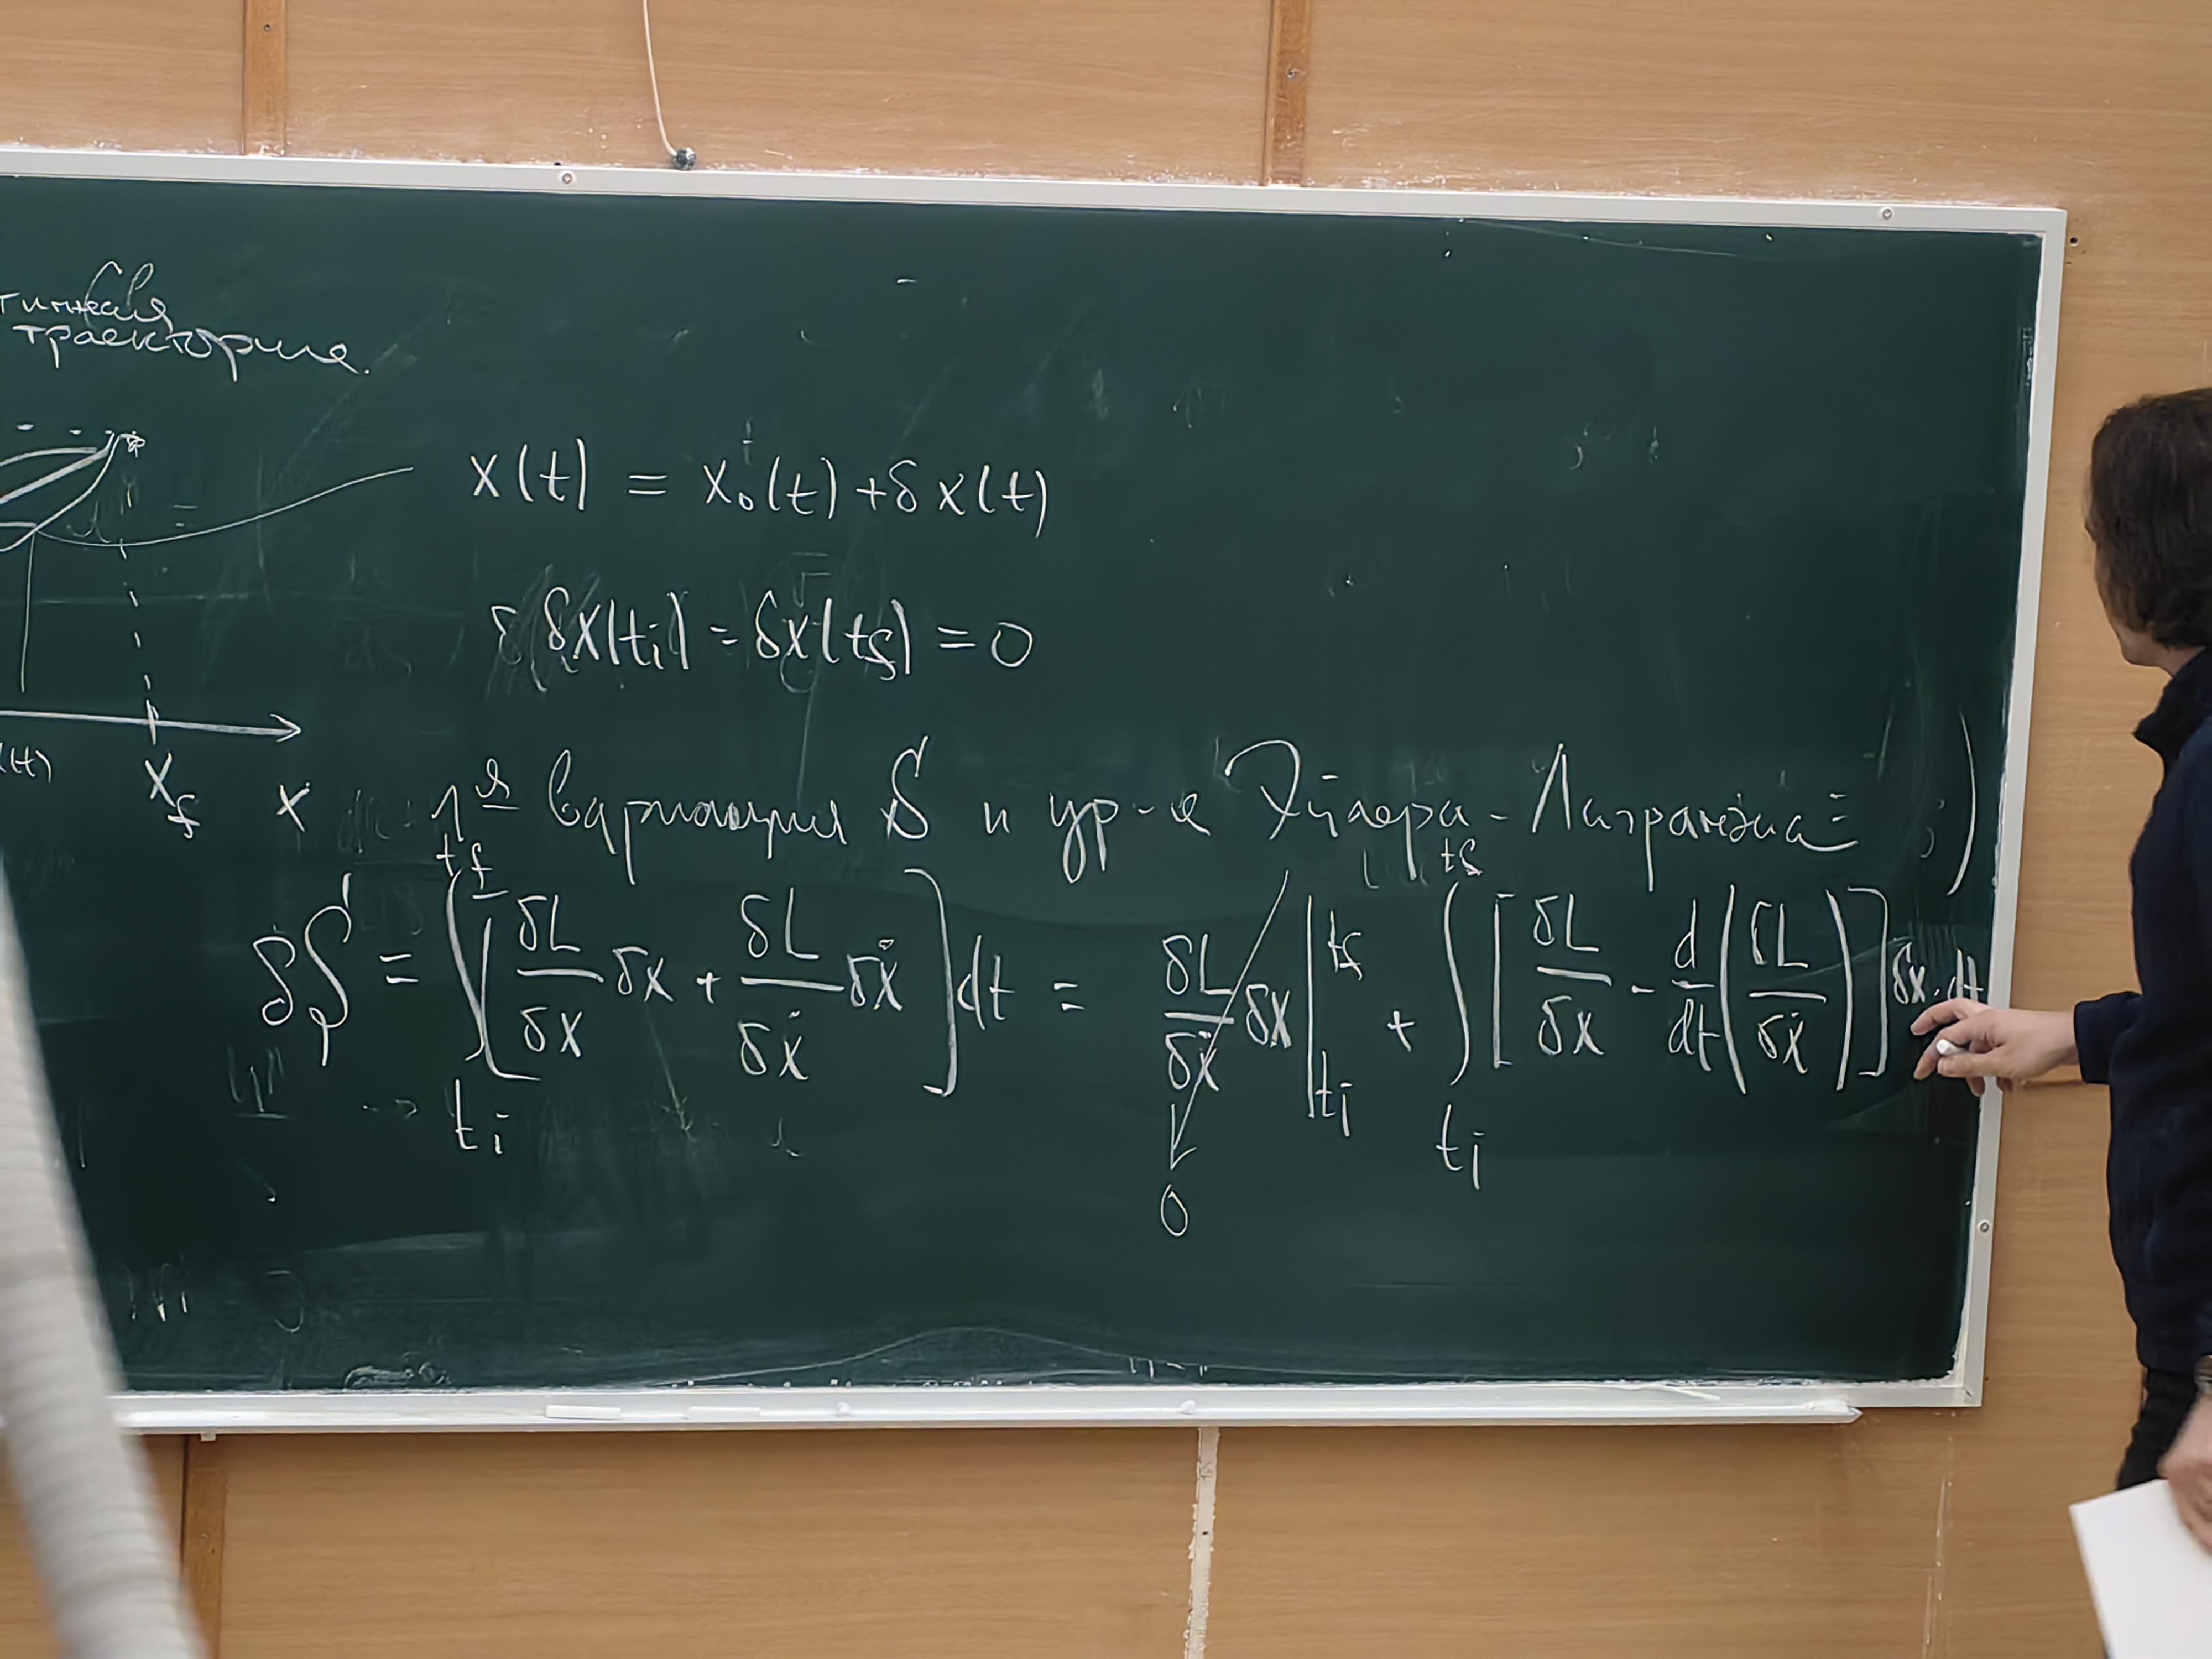 траектория.
x(t) = x₀(t) + δx(t)
δx(t_i) = δx(t_f) = 0
x_f x
1ᵃˢ вариация S и ур-е Эйлера-Лагранжа
δS = ∫_{t_i}^{t_f} [δL/δx δx + δL/δẋ δẋ] dt = δL/δẋ δx |_{t_i}^{t_f} + ∫_{t_i}^{t_f} [δL/δx - d/dt (δL/δẋ)] δx · dt
0